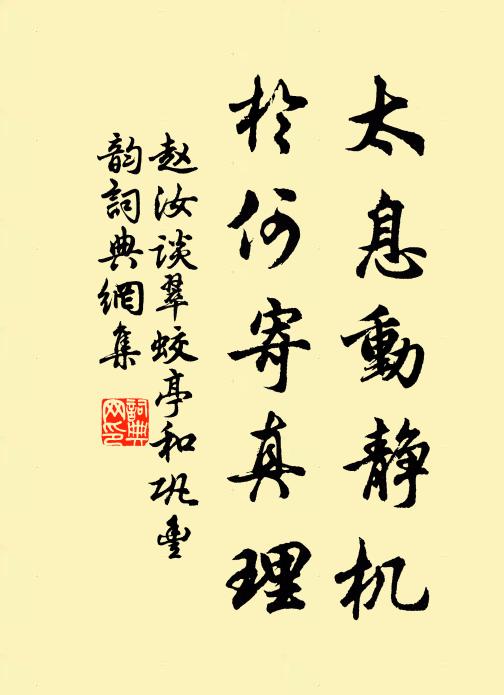 太息動静机
於何寄真理
赵汝谈翠蛟亭和巩豊
韵詞典網集
詞典网印